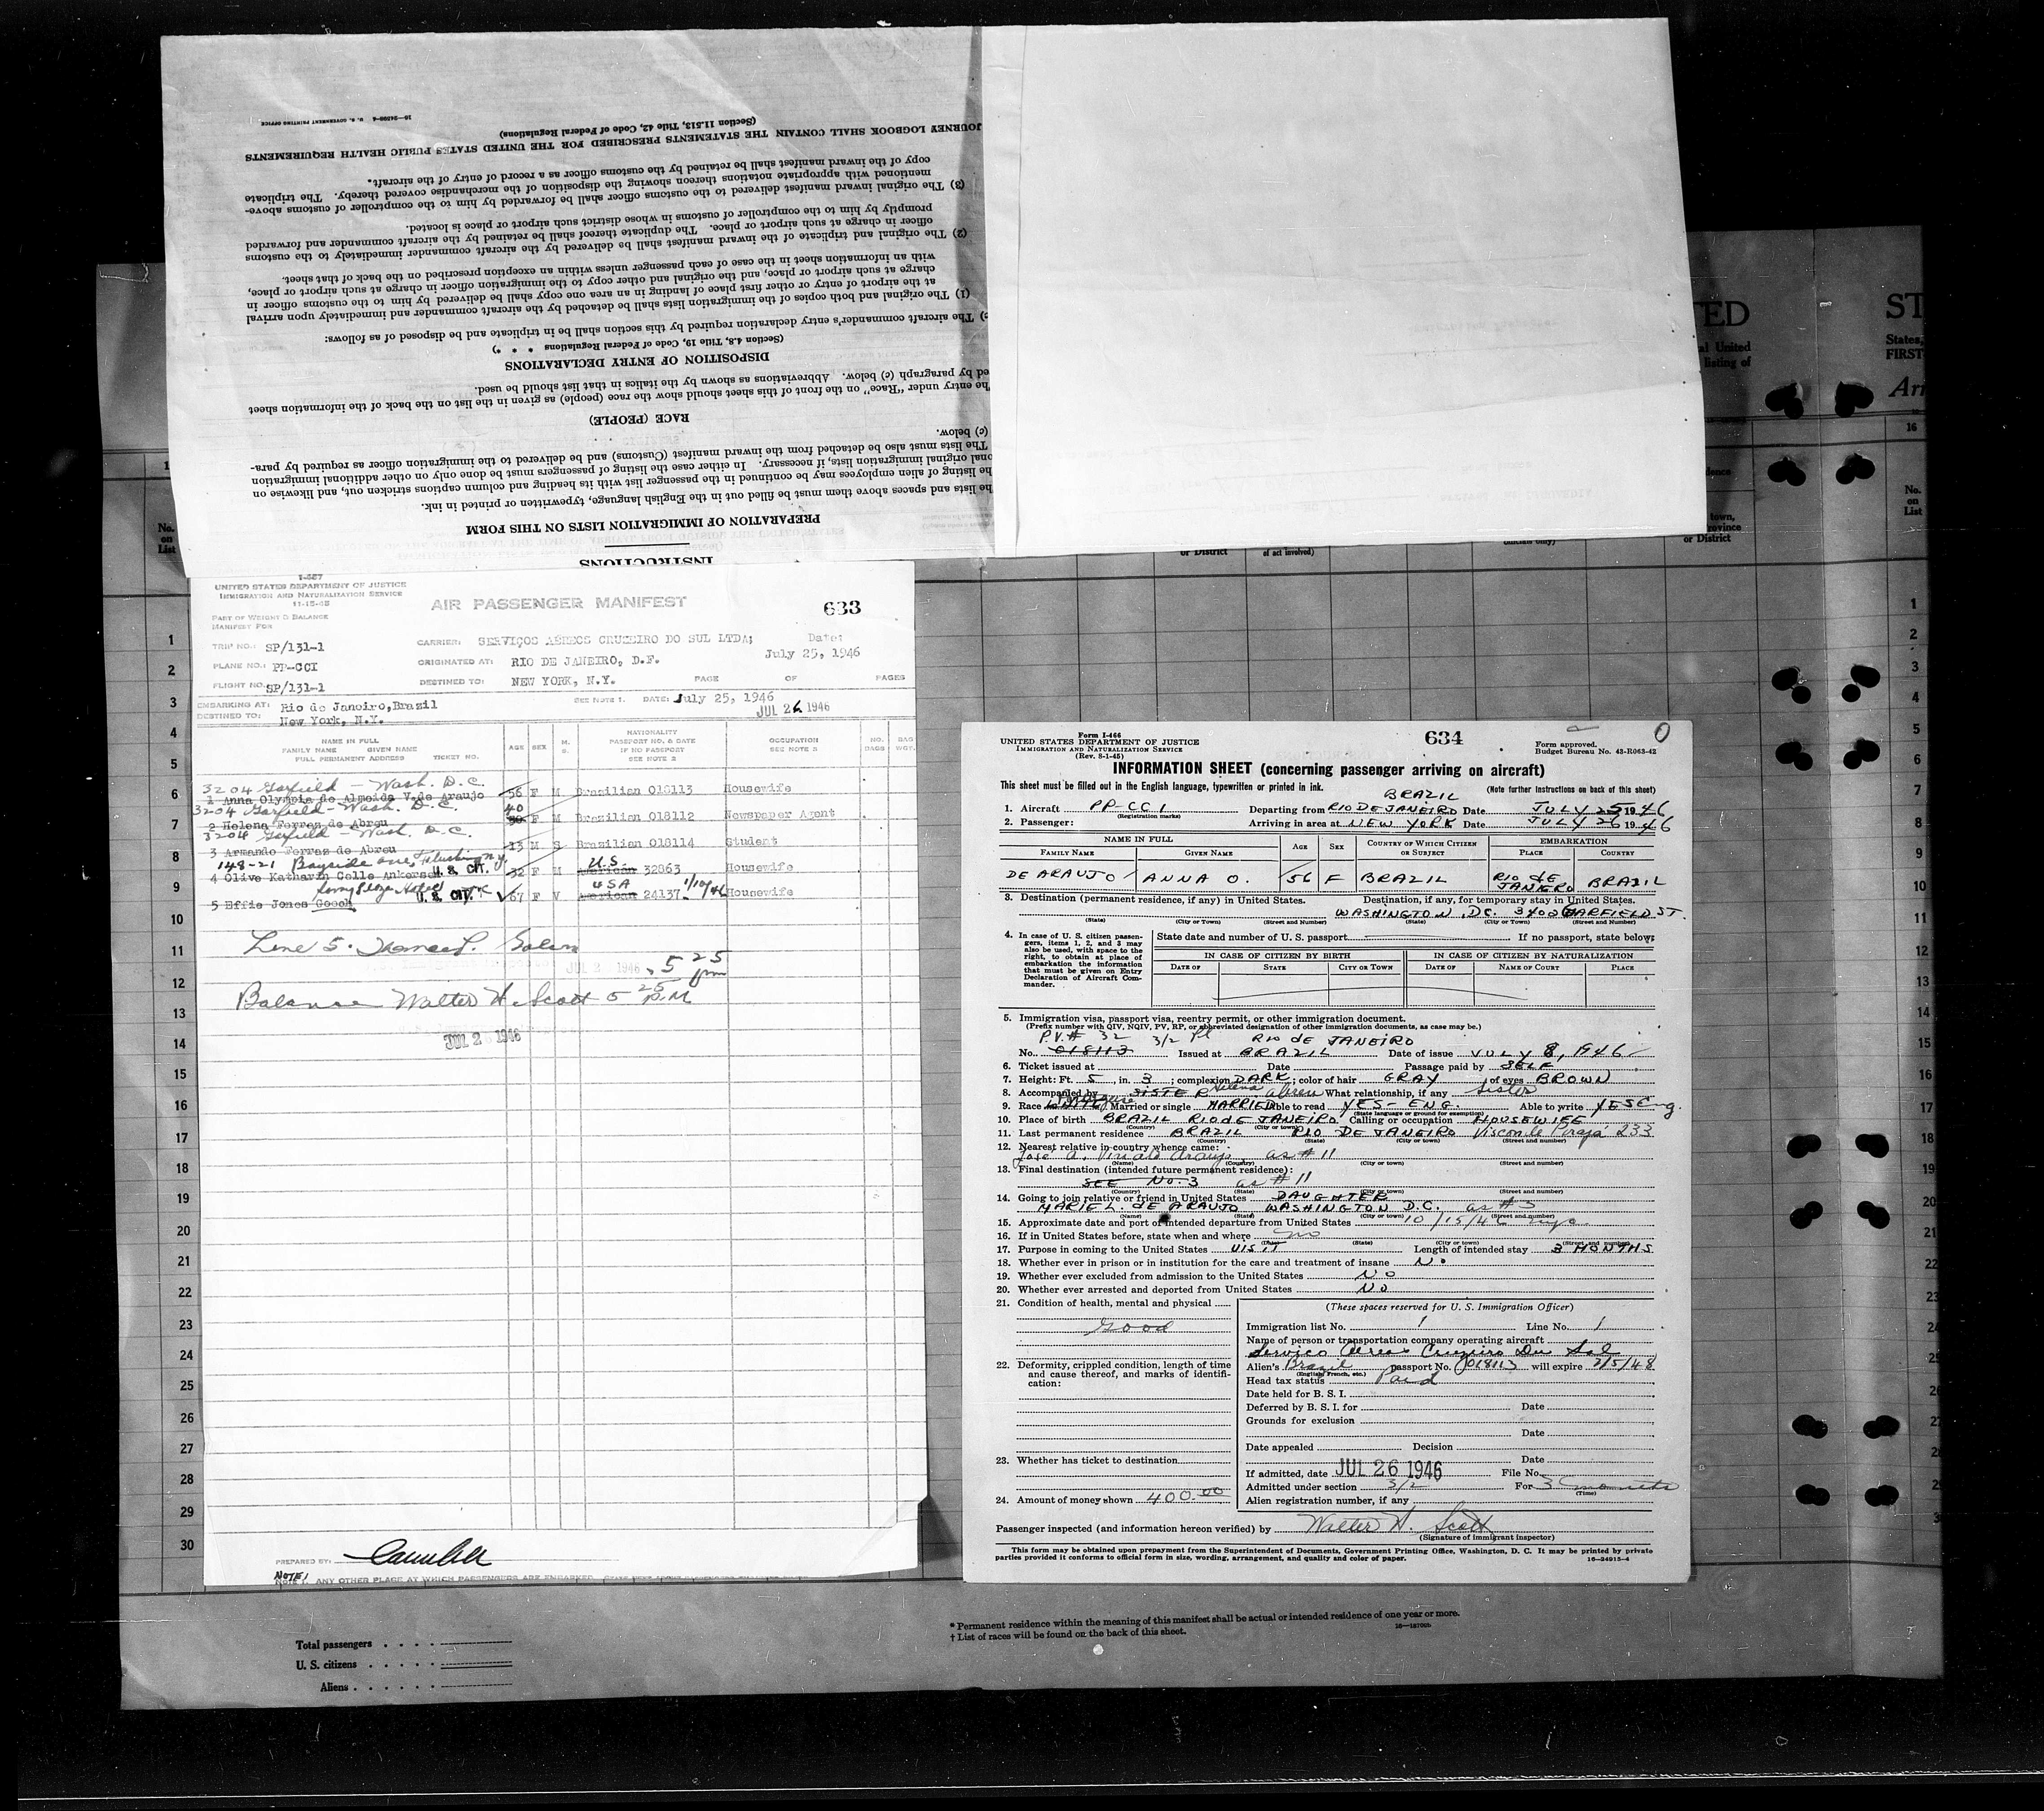 16—24599-4 U. S. GOVERNMENT PRINTING OFFICE
(Section 11.513, Title 42, Code of Federal Regulations)
JOURNEY LOGBOOK SHALL CONTAIN THE STATEMENTS PRESCRIBED FOR THE UNITED STATES PUBLIC HEALTH REQUIREMENTS
copy of the inward manifest shall be retained by the customs officer as a record of entry of the aircraft.
mentioned with appropriate notations thereon showing the disposition of the merchandise covered thereby. The triplicate
(3) The original inward manifest delivered to the customs officer shall be forwarded by him to the comptroller of customs above-
promptly by him to the comptroller of customs in whose district such airport or place is located.
officer in charge at such airport or place. The duplicate thereof shall be retained by the aircraft commander and forwarded
(2) The original and triplicate of the inward manifest shall be delivered by the aircraft commander immediately to the customs
with an information sheet in the case of each passenger unless within an exception prescribed on the back of that sheet.
charge at such airport or place, and the original and other copy to the immigration officer in charge at such airport or place,
at the airport of entry or other first place of landing in an area one copy shall be delivered by him to the customs officer in
(1) The original and both copies of the immigration lists shall be detached by the aircraft commander and immediately upon arrival
c) The aircraft commander's entry declaration required by this section shall be in triplicate and be disposed of as follows:
(Section 4.8, Title 19, Code of Federal Regulations * * *)
DISPOSITION OF ENTRY DECLARATIONS
ed by paragraph (c) below. Abbreviations as shown by the italics in that list should be used.
The entry under "Race" on the front of this sheet should show the race (people) as given in the list on the back of the information sheet
RACE (PEOPLE)
(c) below.
The lists must also be detached from the inward manifest (Customs) and be delivered to the immigration officer as required by para-
onal original immigration lists, if necessary. In either case the listing of passengers must be done only on other additional immigration
the listing of alien employees may be continued in the passenger list with its heading and column captions stricken out, and likewise on
the lists and spaces above them must be filled out in the English language, typewritten or printed in ink.
PREPARATION OF IMMIGRATION LISTS ON THIS FORM
INSTRUCTIONS
I-467
UNITED STATES DEPARTMENT OF JUSTICE
IMMIGRATION AND NATURALIZATION SERVICE
11-15-45
AIR PASSENGER MANIFEST 633
PART OF WEIGHT & BALANCE
MANIFEST FOR
TRIP NO.: SP/131-1 CARRIER: SERVIÇOS AÉREOS CRUZEIRO DO SUL LTDA; Date:
PLANE NO.: PP-CCI ORIGINATED AT: RIO DE JANEIRO, D.F. July 25, 1946
FLIGHT NO. SP/131-1 DESTINED TO: NEW YORK, N.Y. PAGE OF PAGES
EMBARKING AT: Rio de Janeiro, Brazil SEE NOTE 1. DATE: July 25, 1946
DESTINED TO: New York, N.Y. JUL 26 1946
NAME IN FULL
FAMILY NAME GIVEN NAME
FULL PERMANENT ADDRESS TICKET NO. AGE SEX M. S. NATIONALITY PASSPORT NO. & DATE IF NO PASSPORT SEE NOTE 2 OCCUPATION SEE NOTE 3 NO. BAGS BAG WGT.
3204 Garfield - Wash. D.C.
1 Anna Olympia de Almeida V.de Araujo 56 F M Brazilian 018113 Housewife
3204 Garfield - Wash. D.C. 40
2 Helena Ferraz de Abreu F M Brazilian 018112 Newspaper Agent
3204 Garfield - Wash. D.C.
3 Armando Ferraz de Abreu 13 M S Brazilian 018114 Student
148-21 Bayside ave, Flushing N.Y. U.S
4 Olive Katharin Celle Ankersen U.S. CIT. 32 F M American 32863 Housewife
USA 1/10/46
5 Effie Jones Gooch U.S. CIT. 67 F V American 24137 Housewife
Line 5.
JUL 2 1946 5 25 pm
Balance Walter H. Scott 5 25 P.M.
JUL 2 1946
PREPARED BY:
NOTE 1
NOTE 1. ANY OTHER PLACE AT WHICH PASSENGERS ARE EMBARKED
Form I-466
UNITED STATES DEPARTMENT OF JUSTICE
IMMIGRATION AND NATURALIZATION SERVICE
(Rev. 8-1-45)
634
Form approved.
Budget Bureau No. 43-R063-42
INFORMATION SHEET (concerning passenger arriving on aircraft)
This sheet must be filled out in the English language, typewritten or printed in ink. (Note further instructions on back of this sheet)
BRAZIL
1. Aircraft PP-CCI Departing from RIO DE JANEIRO Date JULY 25 1946
(Registration marks)
2. Passenger: Arriving in area at NEW YORK Date JULY 26 1946
NAME IN FULL AGE SEX COUNTRY OF WHICH CITIZEN OR SUBJECT EMBARKATION
FAMILY NAME GIVEN NAME PLACE COUNTRY
DE ARAUJO ANNA O. 56 F BRAZIL RIO de JANEIRO BRAZIL
3. Destination (permanent residence, if any) in United States. Destination, if any, for temporary stay in United States.
WASHINGTON D.C. GARFIELD ST.
(State) (City or Town) (Street and Number) (State) (City or Town) (Street and Number)
4. In case of U. S. citizen passengers, items 1, 2, and 3 may also be used, with space to the right, to obtain at place of embarkation the information that must be given on Entry Declaration of Aircraft Commander.
State date and number of U. S. passport If no passport, state below:
IN CASE OF CITIZEN BY BIRTH IN CASE OF CITIZEN BY NATURALIZATION
DATE OF STATE CITY OR TOWN DATE OF NAME OF COURT PLACE
5. Immigration visa, passport visa, reentry permit, or other immigration document.
(Prefix number with QIV, NQIV, PV, RP, or abbreviated designation of other immigration documents, as case may be.)
P.V.# 32 3/2 RIO de JANEIRO
No. 018113 Issued at BRAZIL Date of issue JULY 8, 1946
6. Ticket issued at Date Passage paid by SELF
7. Height: Ft. 5, in. 3; complexion DARK; color of hair GRAY; of eyes BROWN
8. Accompanied by SISTER Helena Abreu What relationship, if any Sister
9. Race Married or single MARRIED Able to read YES-ENG. Able to write YES Eng.
(State language or ground for exemption)
10. Place of birth BRAZIL RIO DE JANEIRO Calling or occupation HOUSEWIFE
(Country) (City or town)
11. Last permanent residence BRAZIL RIO DE JANEIRO Visconde Pirajá 233
(Country) (State) (City or town) (Street and number)
12. Nearest relative in country whence came:
José A. Araujo as #11
(Name) (Country) (City or town) (Street and number)
13. Final destination (intended future permanent residence):
SEE No. 3 as #11
(Country) (State) (City or town) (Street and number)
14. Going to join relative or friend in United States DAUGHTER
MARIE L. de ARAUJO WASHINGTON D.C. as #3
(Name) (State) (City or town) (Street and number)
15. Approximate date and port of intended departure from United States 10/15/46 nyc
16. If in United States before, state when and where no
(Date) (State) (City or town) (Street and number)
17. Purpose in coming to the United States VISIT Length of intended stay 3 MONTHS
18. Whether ever in prison or in institution for the care and treatment of insane No
19. Whether ever excluded from admission to the United States No
20. Whether ever arrested and deported from United States No
21. Condition of health, mental and physical
Good
22. Deformity, crippled condition, length of time and cause thereof, and marks of identification:
23. Whether has ticket to destination
24. Amount of money shown 400.00
(These spaces reserved for U. S. Immigration Officer)
Immigration list No. 1 Line No. 1
Name of person or transportation company operating aircraft
Servico Aereos Cruzeiro Du Sul
Alien's Brazil passport No. 018113 will expire 7/5/48
(English, French, etc.)
Head tax status Paid
Date held for B. S. I.
Deferred by B. S. I. for Date
Grounds for exclusion
Date
Date appealed Decision
Date
If admitted, date JUL 26 1946 File No.
Admitted under section 3/2 For 3 months
(Time)
Alien registration number, if any
Passenger inspected (and information hereon verified) by Walter H. Scott
(Signature of immigrant inspector)
This form may be obtained upon prepayment from the Superintendent of Documents, Government Printing Office, Washington, D. C. It may be printed by private
parties provided it conforms to official form in size, wording, arrangement, and quality and color of paper. 16—24915-4
* Permanent residence within the meaning of this manifest shall be actual or intended residence of one year or more.
† List of races will be found on the back of this sheet.
Total passengers
U. S. citizens
Aliens